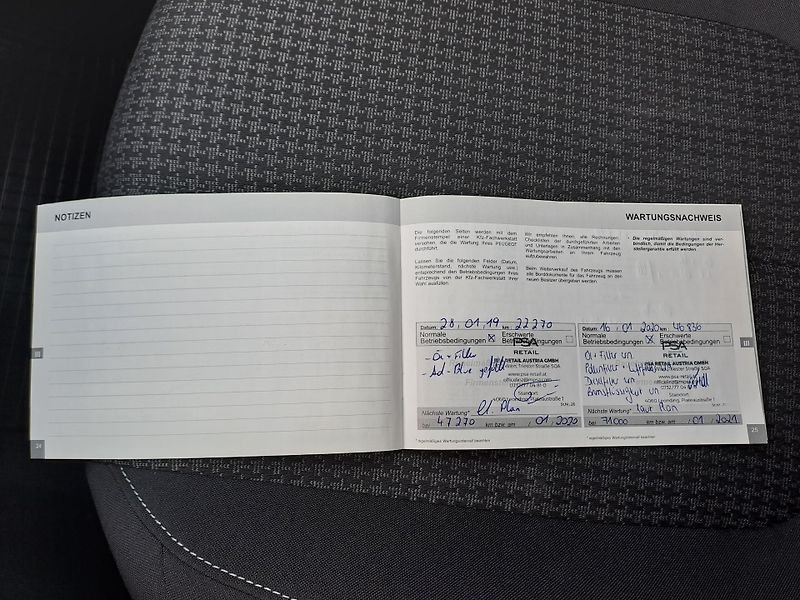 NOTIZEN
WARTUNGSNACHWEIS
Die folgenden Seiten werden mit dem
Firmenstempel einer Kfz-Fachwerkstatt
versehen, die die Wartung Ihres PEUGEOT
durchführt.
Lassen Sie die folgenden Felder (Datum,
Kilometerstand, nächste Wartung usw.)
entsprechend den Betriebsbedingungen Ihres
Fahrzeugs von der Kfz-Fachwerkstatt Ihrer
Wahl ausfüllen.
Wir empfehlen Ihnen, alle Rechnungen,
Checklisten der durchgeführten Arbeiten
und Unterlagen in Zusammenhang mit den
Wartungsarbeiten an Ihrem Fahrzeug
aufzubewahren.
Beim Weiterverkauf des Fahrzeugs müssen
alle Borddokumente für das Fahrzeug an den
neuen Besitzer übergeben werden.
* Die regelmäßigen Wartungen sind ver-
bindlich, damit die Bedingungen der Her-
stellergarantie erfüllt werden.
Datum 28.01.19 km 22270
Normale Betriebsbedingungen X Erschwerte Betriebsbedingungen
PSA
RETAIL
PSA RETAIL AUSTRIA GMBH
- Öl + Filter
- Ad-Blue gefüllt
www.psa-retail.at
Standort
lt. Plan
Nächste Wartung*
bei 47270 km bzw. am / 01 / 2020
* regelmäßiges Wartungsintervall beachten
Datum 16.01.2020 km 46836
Normale Betriebsbedingungen X Erschwerte Betriebsbedingungen
PSA
RETAIL
PSA RETAIL AUSTRIA GMBH
Öl + Filter
www.psa-retail.at
Standort
Nächste Wartung* laut Plan
bei 71000 km bzw. am / 01 / 2021
* regelmäßiges Wartungsintervall beachten
III
III
24
25